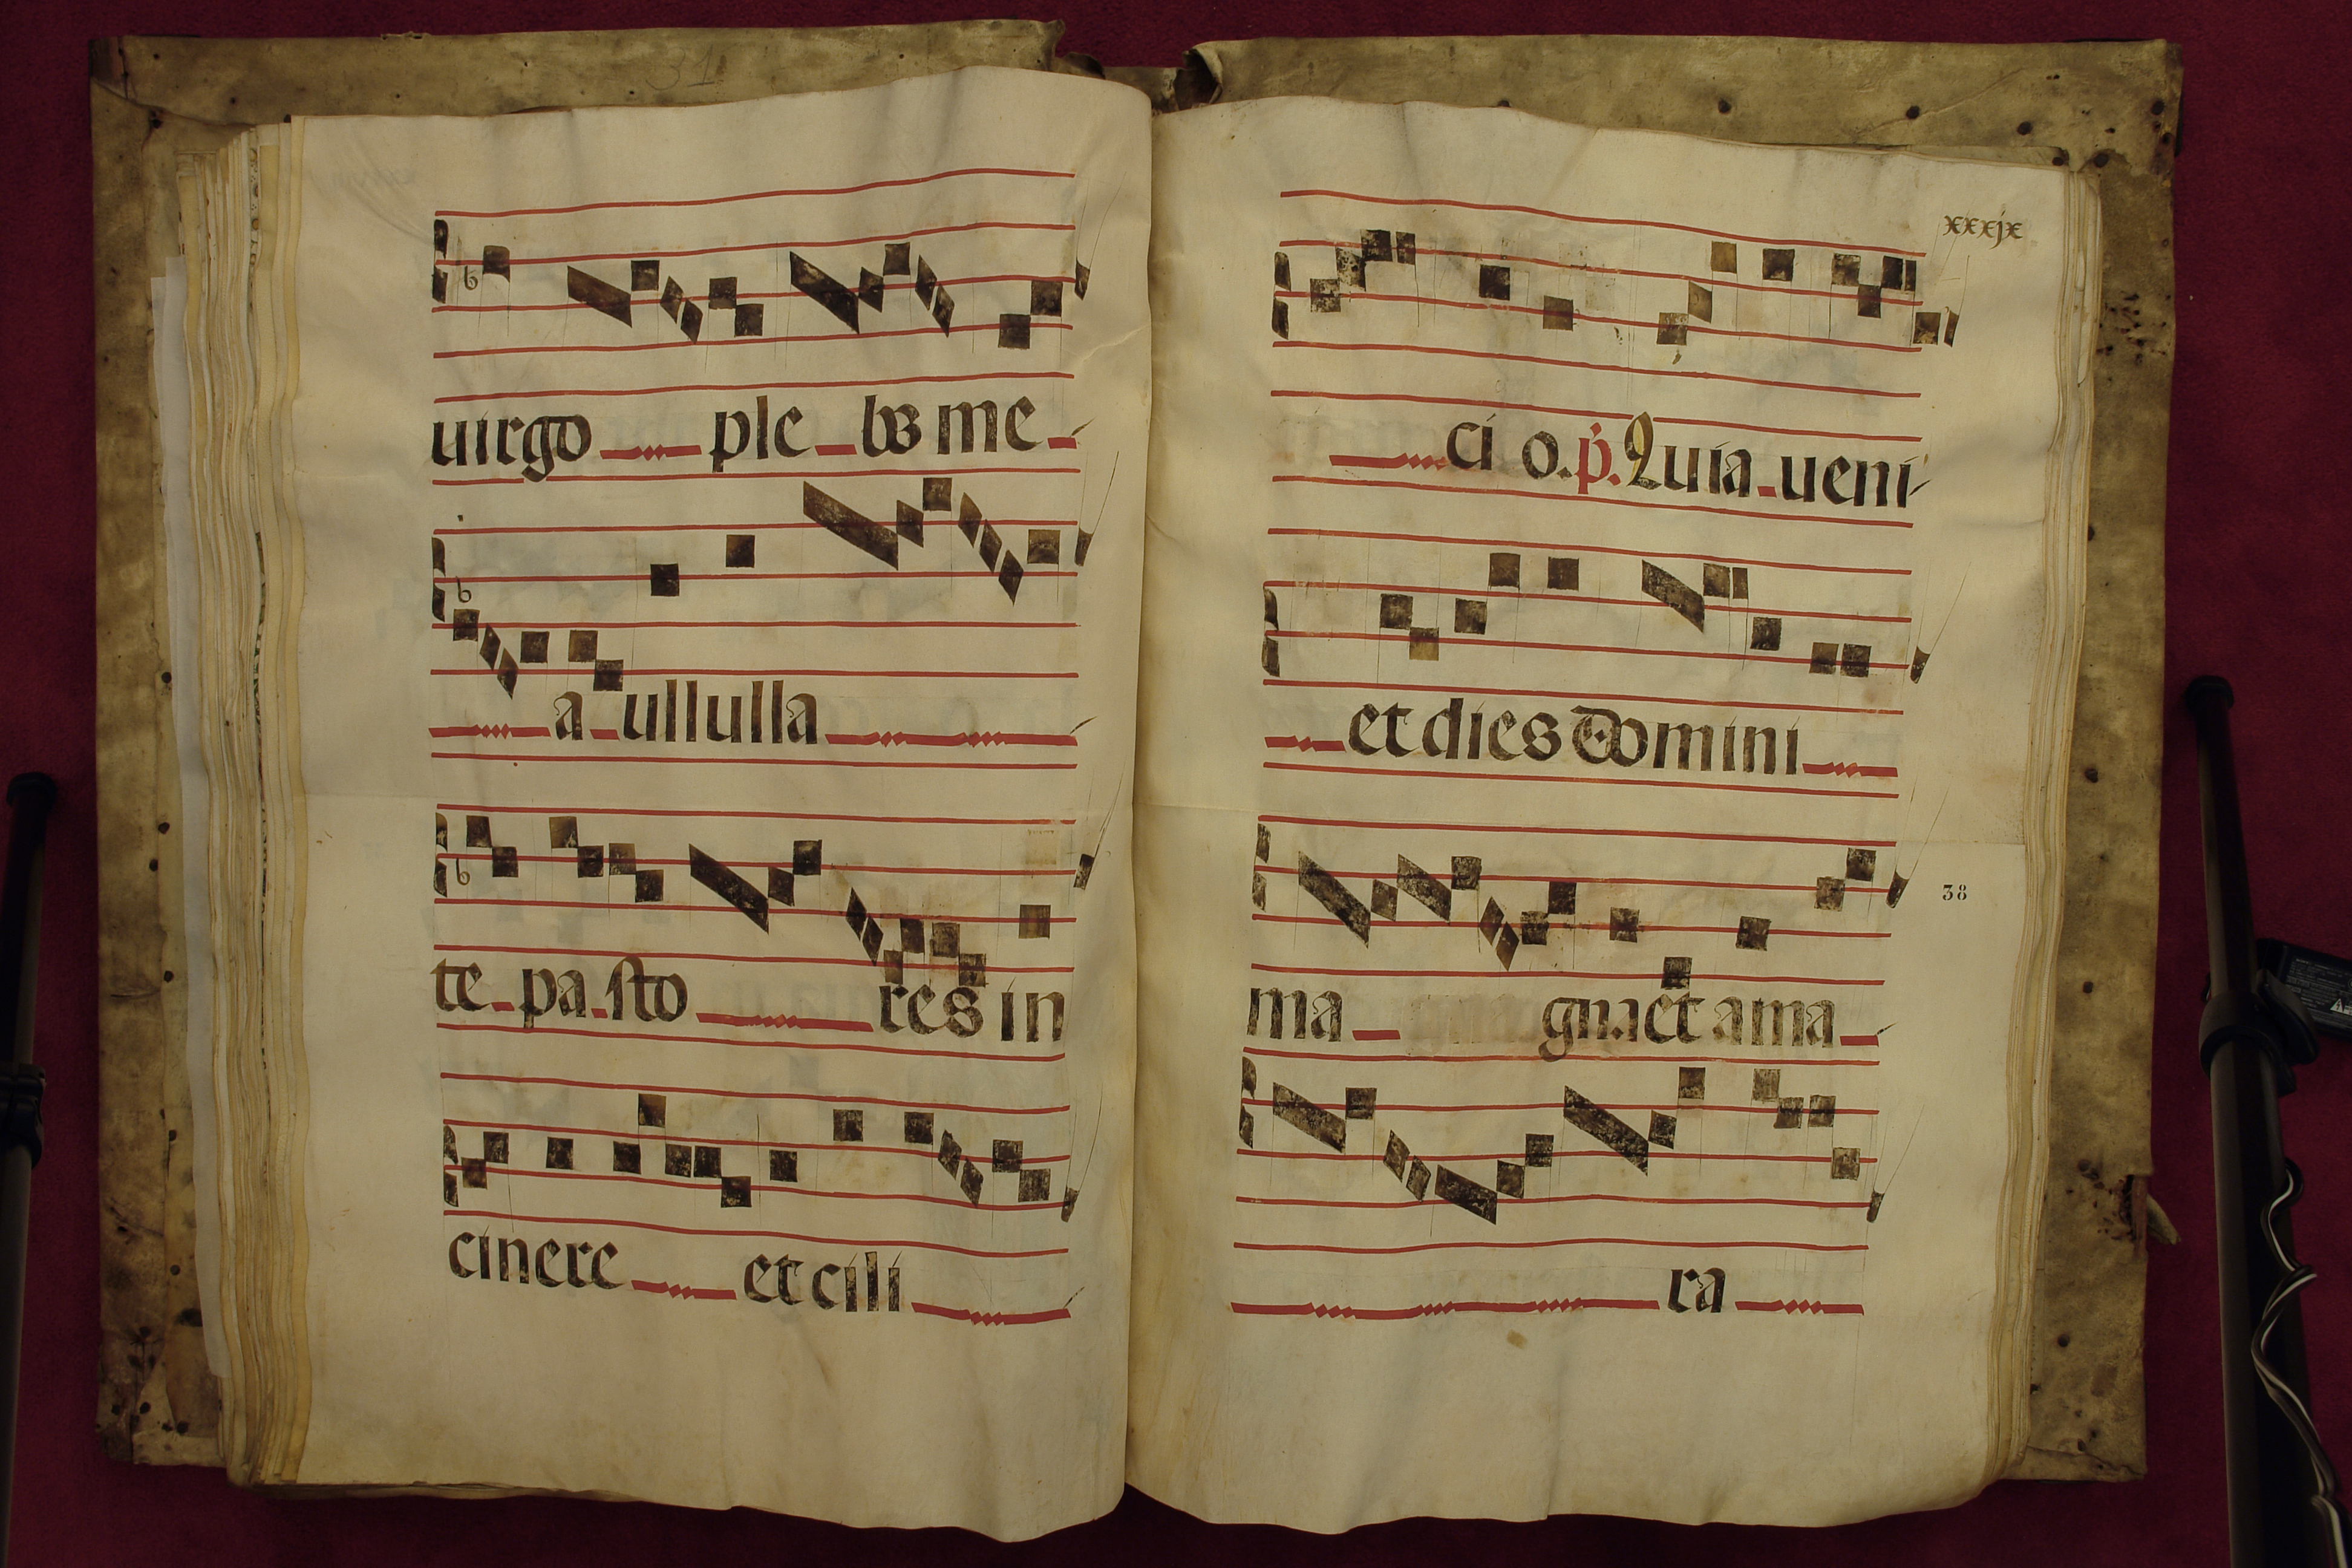 31
uirgo ple bs me
a ullulla
te pa sto res in
cinere et cili
xxxjx
ci o. p. Quia ueni
et dies domini
38
ma gna et ama
ra